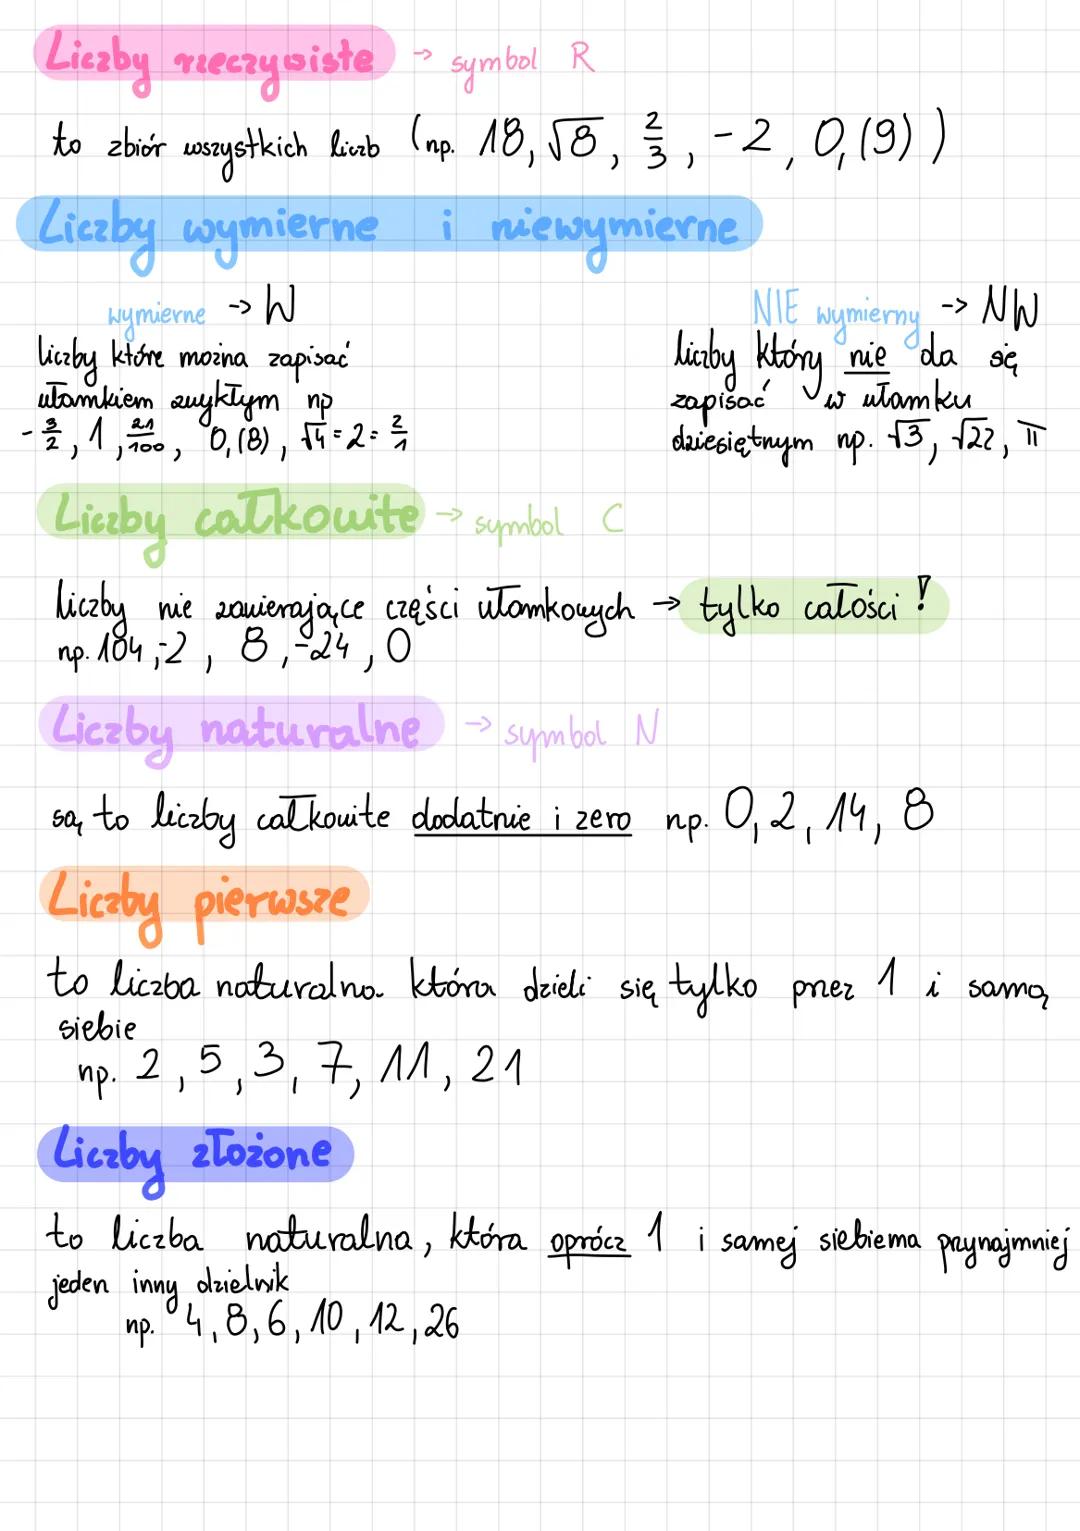 Liczby rzeczywiste → symbol R
to zbiór wszystkich liczb (np. 18, √8, 2/3, -2, 0,(9))
Liczby wymierne i niewymierne
wymierne -> W
liczby które można zapisać
ułamkiem zwykłym np
-3/2, 1, 21/100, 0,(8), √4 = 2 = 2/1
NIE wymierny -> NW
liczby który nie da się
zapisać w ułamku
dziesiętnym np. √3, √22, π
Liczby całkowite → symbol C
liczby nie zawierające części ułamkowych → tylko całości!
np. 104, -2, 8, -24, 0
Liczby naturalne → symbol N
są to liczby całkowite dodatnie i zero np. 0, 2, 14, 8
Liczby pierwsze
to liczba naturalna która dzieli się tylko przez 1 i samą
siebie
np. 2, 5, 3, 7, 11, 21
Liczby złożone
to liczba naturalna, która oprócz 1 i samej siebie ma przynajmniej
jeden inny dzielnik
np. 4, 8, 6, 10, 12, 26